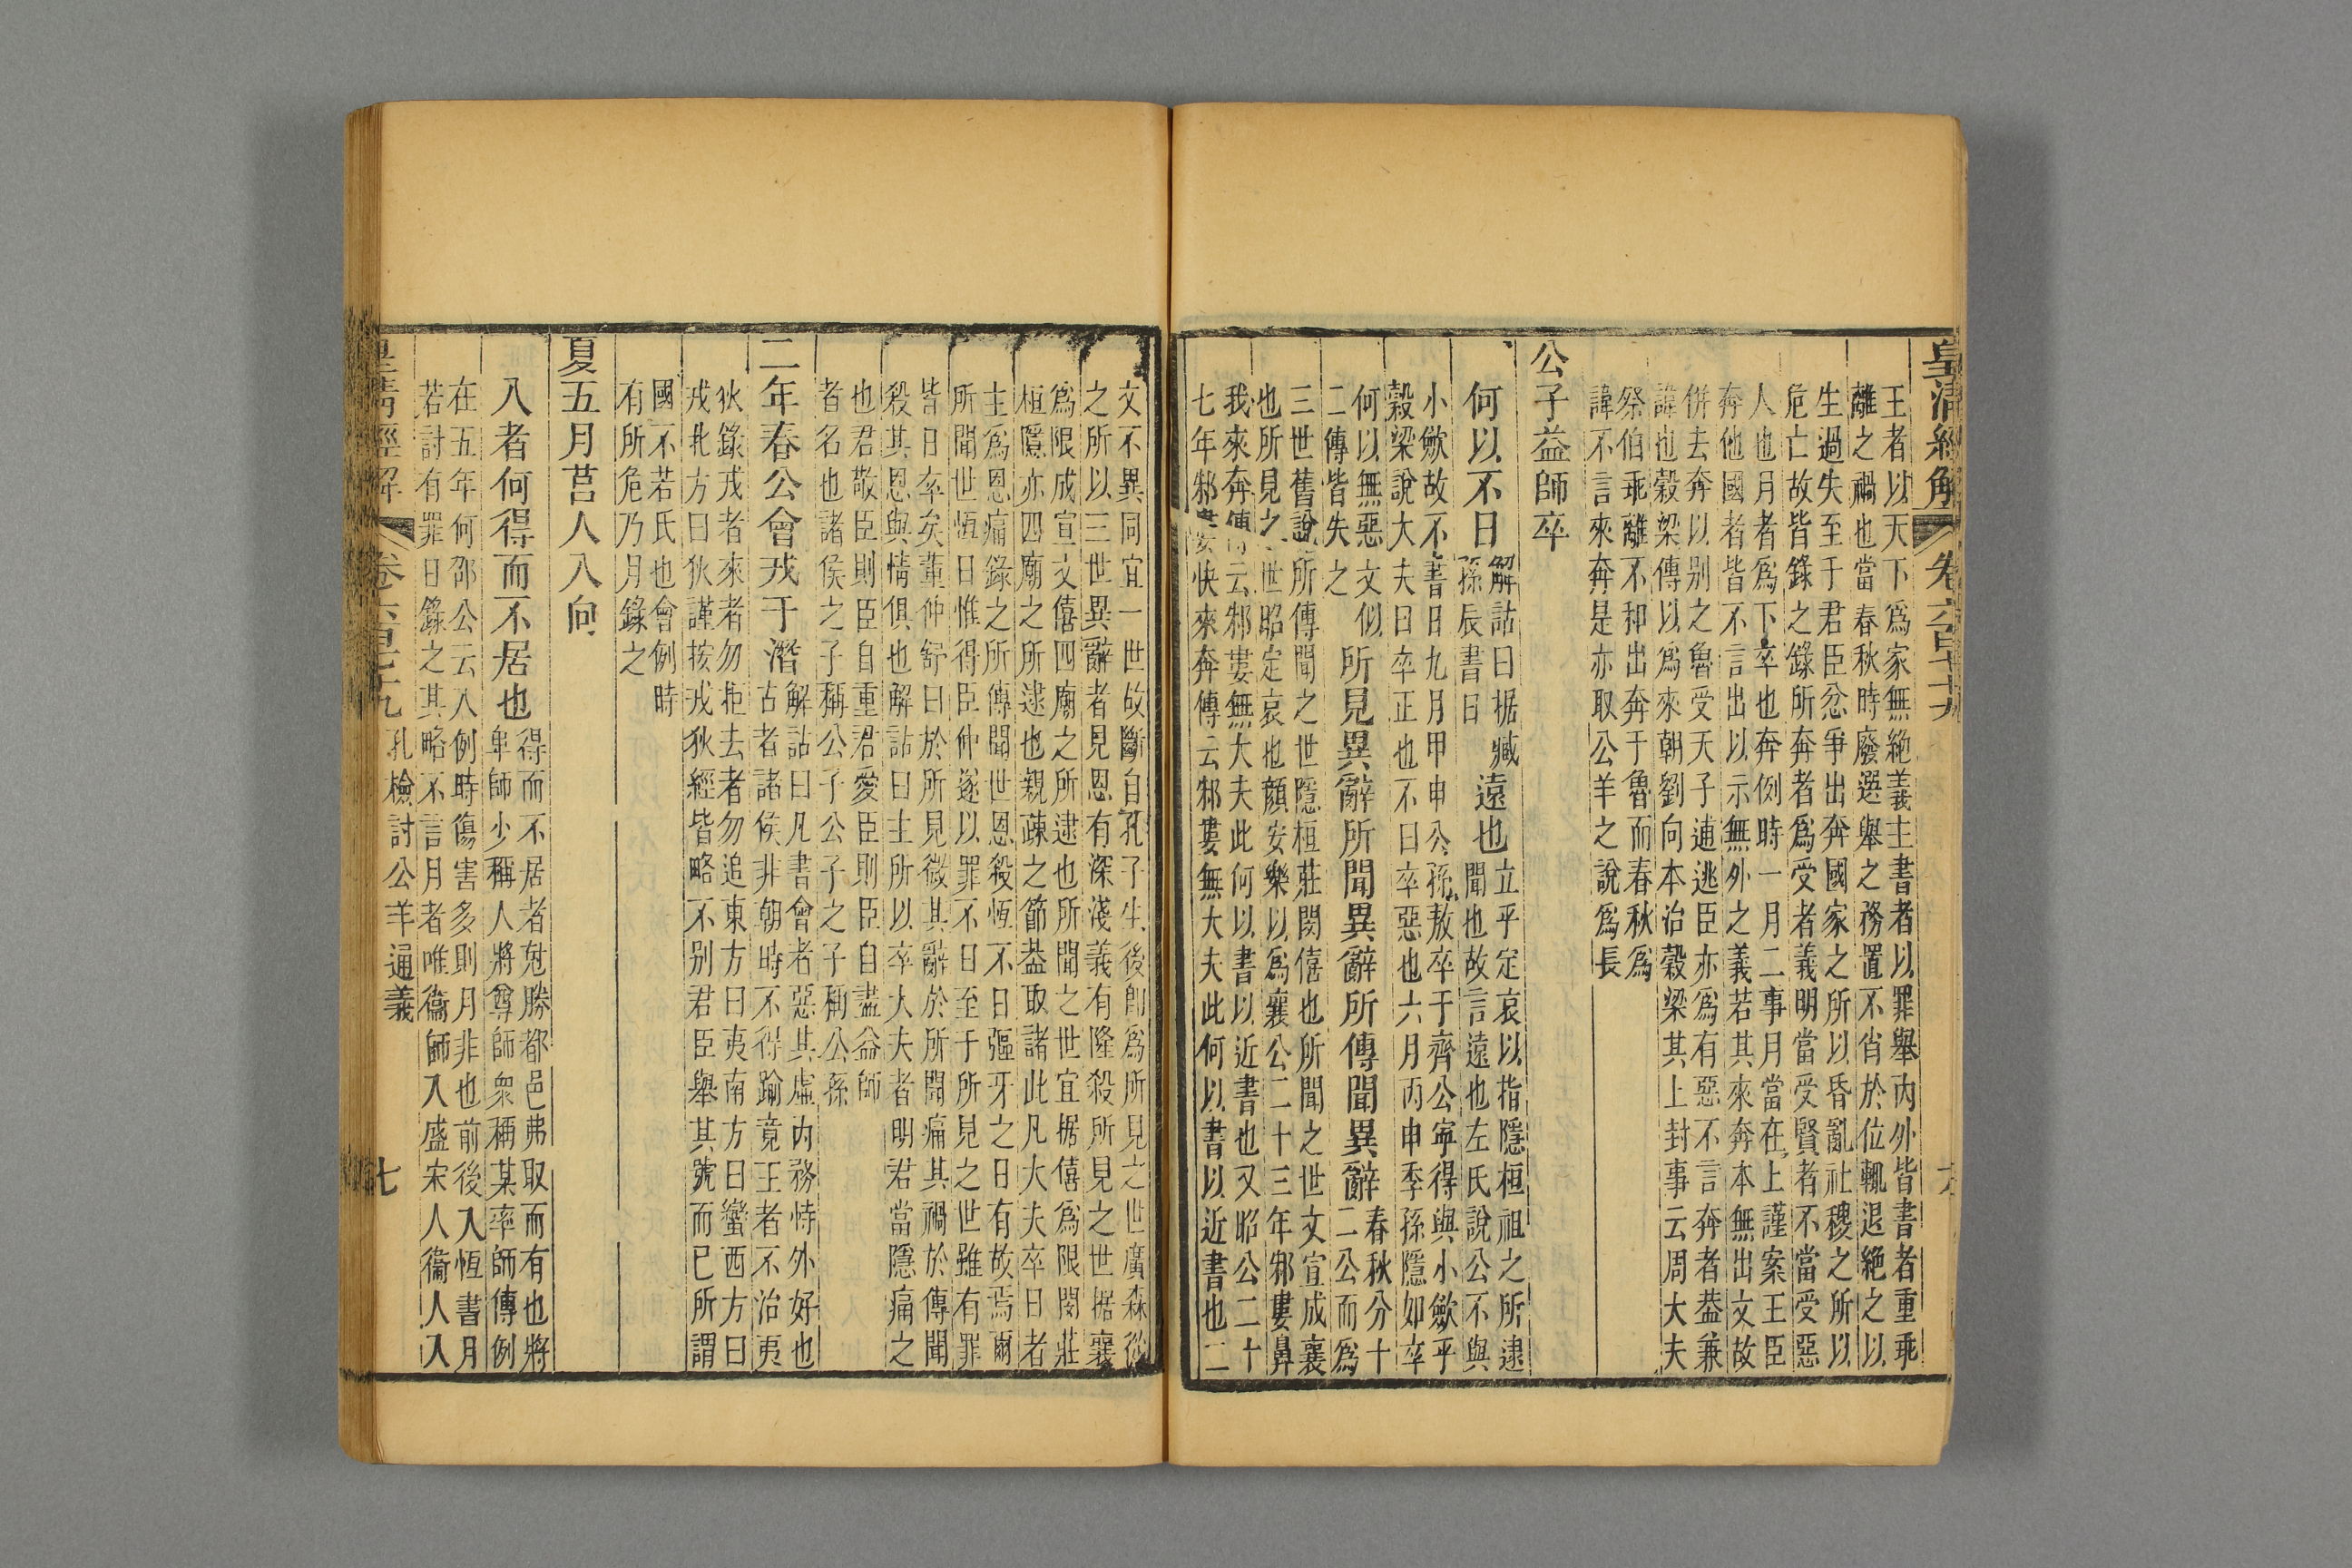 皇清經解 卷六百七十九 六
王者以天下爲家無絶義主書者以罪舉內外皆書者重乖
離之禍也當春秋時廢選舉之務置不肖於位輒退絶之以
生過失至于君臣忿爭出奔國家之所以昏亂社稷之所以
危亡故皆錄之錄所奔者爲受者義明當受賢者不當受惡
人也月者爲下卒也奔例時一月二事月當在上謹案王臣
奔他國者皆不言出以示無外之義若其來奔本無出文故
併去奔以别之魯受天子逋逃臣亦爲有惡不言奔者葢兼
諱也穀梁傳以爲來朝劉向本治穀梁其上封事云周大夫
祭伯乖離不和出奔于魯而春秋爲
諱不言來奔是亦取公羊之說爲長
公子益師卒
何以不日
解詁曰据臧
孫辰書日
遠也
立乎定哀以指隱桓祖之所逮
聞也故言遠也左氏說公不與
小斂故不書日九月甲申公孫敖卒于齊公寧得與小斂乎
穀梁說大夫日卒正也不日卒惡也六月丙申季孫隱如卒
何以無惡文似
二傳皆失之
所見異辭所聞異辭所傳聞異辭
春秋分十
二公而爲
三世舊說所傳聞之世隱桓莊閔僖也所聞之世文宣成襄
也所見之世昭定哀也顔安樂以爲襄公二十三年邾婁鼻
我來奔傳云邾婁無大夫此何以書以近書也又昭公二十
七年邾婁快來奔傳云邾婁無大夫此何以書以近書也二
文不異同宜一世故斷自孔子生後卽爲所見之世廣森從
之所以三世異辭者見恩有深淺義有隆殺所見之世据襄
爲限成宣文僖四廟之所逮也所聞之世宜据僖爲限閔莊
桓隱亦四廟之所逮也親疎之節葢取諸此凡大夫卒日者
主爲恩痛錄之所傳聞世恩殺恆不日彄牙之日有故焉爾
所聞世恆日惟得臣仲遂以罪不日至于所見之世雖有罪
皆日卒矣董仲舒曰於所見微其辭於所聞痛其禍於傳聞
殺其恩與情俱也解詁曰主所以卒大夫者明君當隱痛之
也君敬臣則臣自重君愛臣則臣自盡益師
者名也諸侯之子稱公子公子之子稱公孫
二年春公會戎于潛
解詁曰凡書會者惡其虛內務恃外好也
古者諸侯非朝時不得踰竟王者不治夷
狄錄戎者來者勿拒去者勿追東方曰夷南方曰蠻西方曰
戎北方曰狄謹按戎狄經皆略不别君臣舉其號而已所謂
國不若氏也會例時
有所危乃月錄之
夏五月莒人入向
入者何得而不居也
得而不居者尅勝都邑弗取而有也將
卑師少稱人將尊師衆稱某率師傳例
在五年何邵公云入例時傷害多則月非也前後入恆書月
若討有罪日錄之其略不言月者唯衞師入盛宋人衞人入
皇清經解 卷六百七十九 孔檢討公羊通義 七